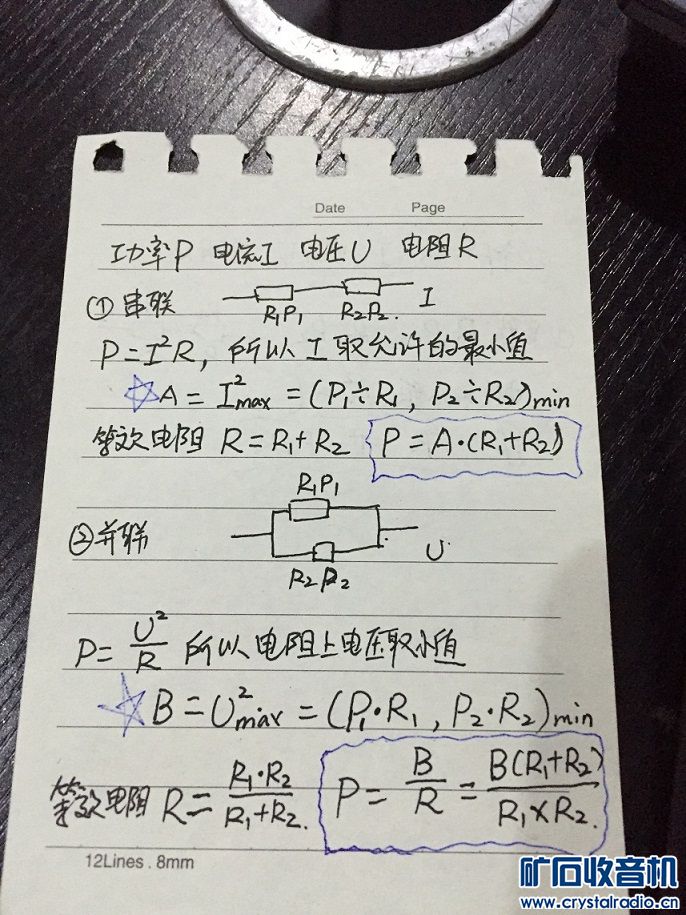 Date Page
功率P 电流I 电压U 电阻R
①串联 R₁P₁ R₂P₂. I
P=I²R, 所以I取允许的最小值
☆A=I²max=(P₁÷R₁, P₂÷R₂)min
等效电阻 R=R₁+R₂ P=A·(R₁+R₂)
R₁P₁
②并联 U.
R₂P₂
P=U²/R 所以电阻上电压取小值
☆B=U²max=(P₁·R₁, P₂·R₂)min
等效电阻 R=R₁·R₂/R₁+R₂. P=B/R=B(R₁+R₂)/R₁×R₂.
12Lines . 8mm
矿石收音机
www.crystalradio.cn